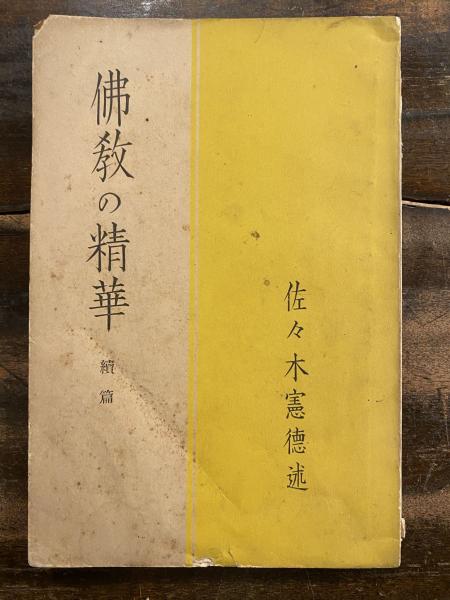 佐々木憲德述
佛教の精華
續篇